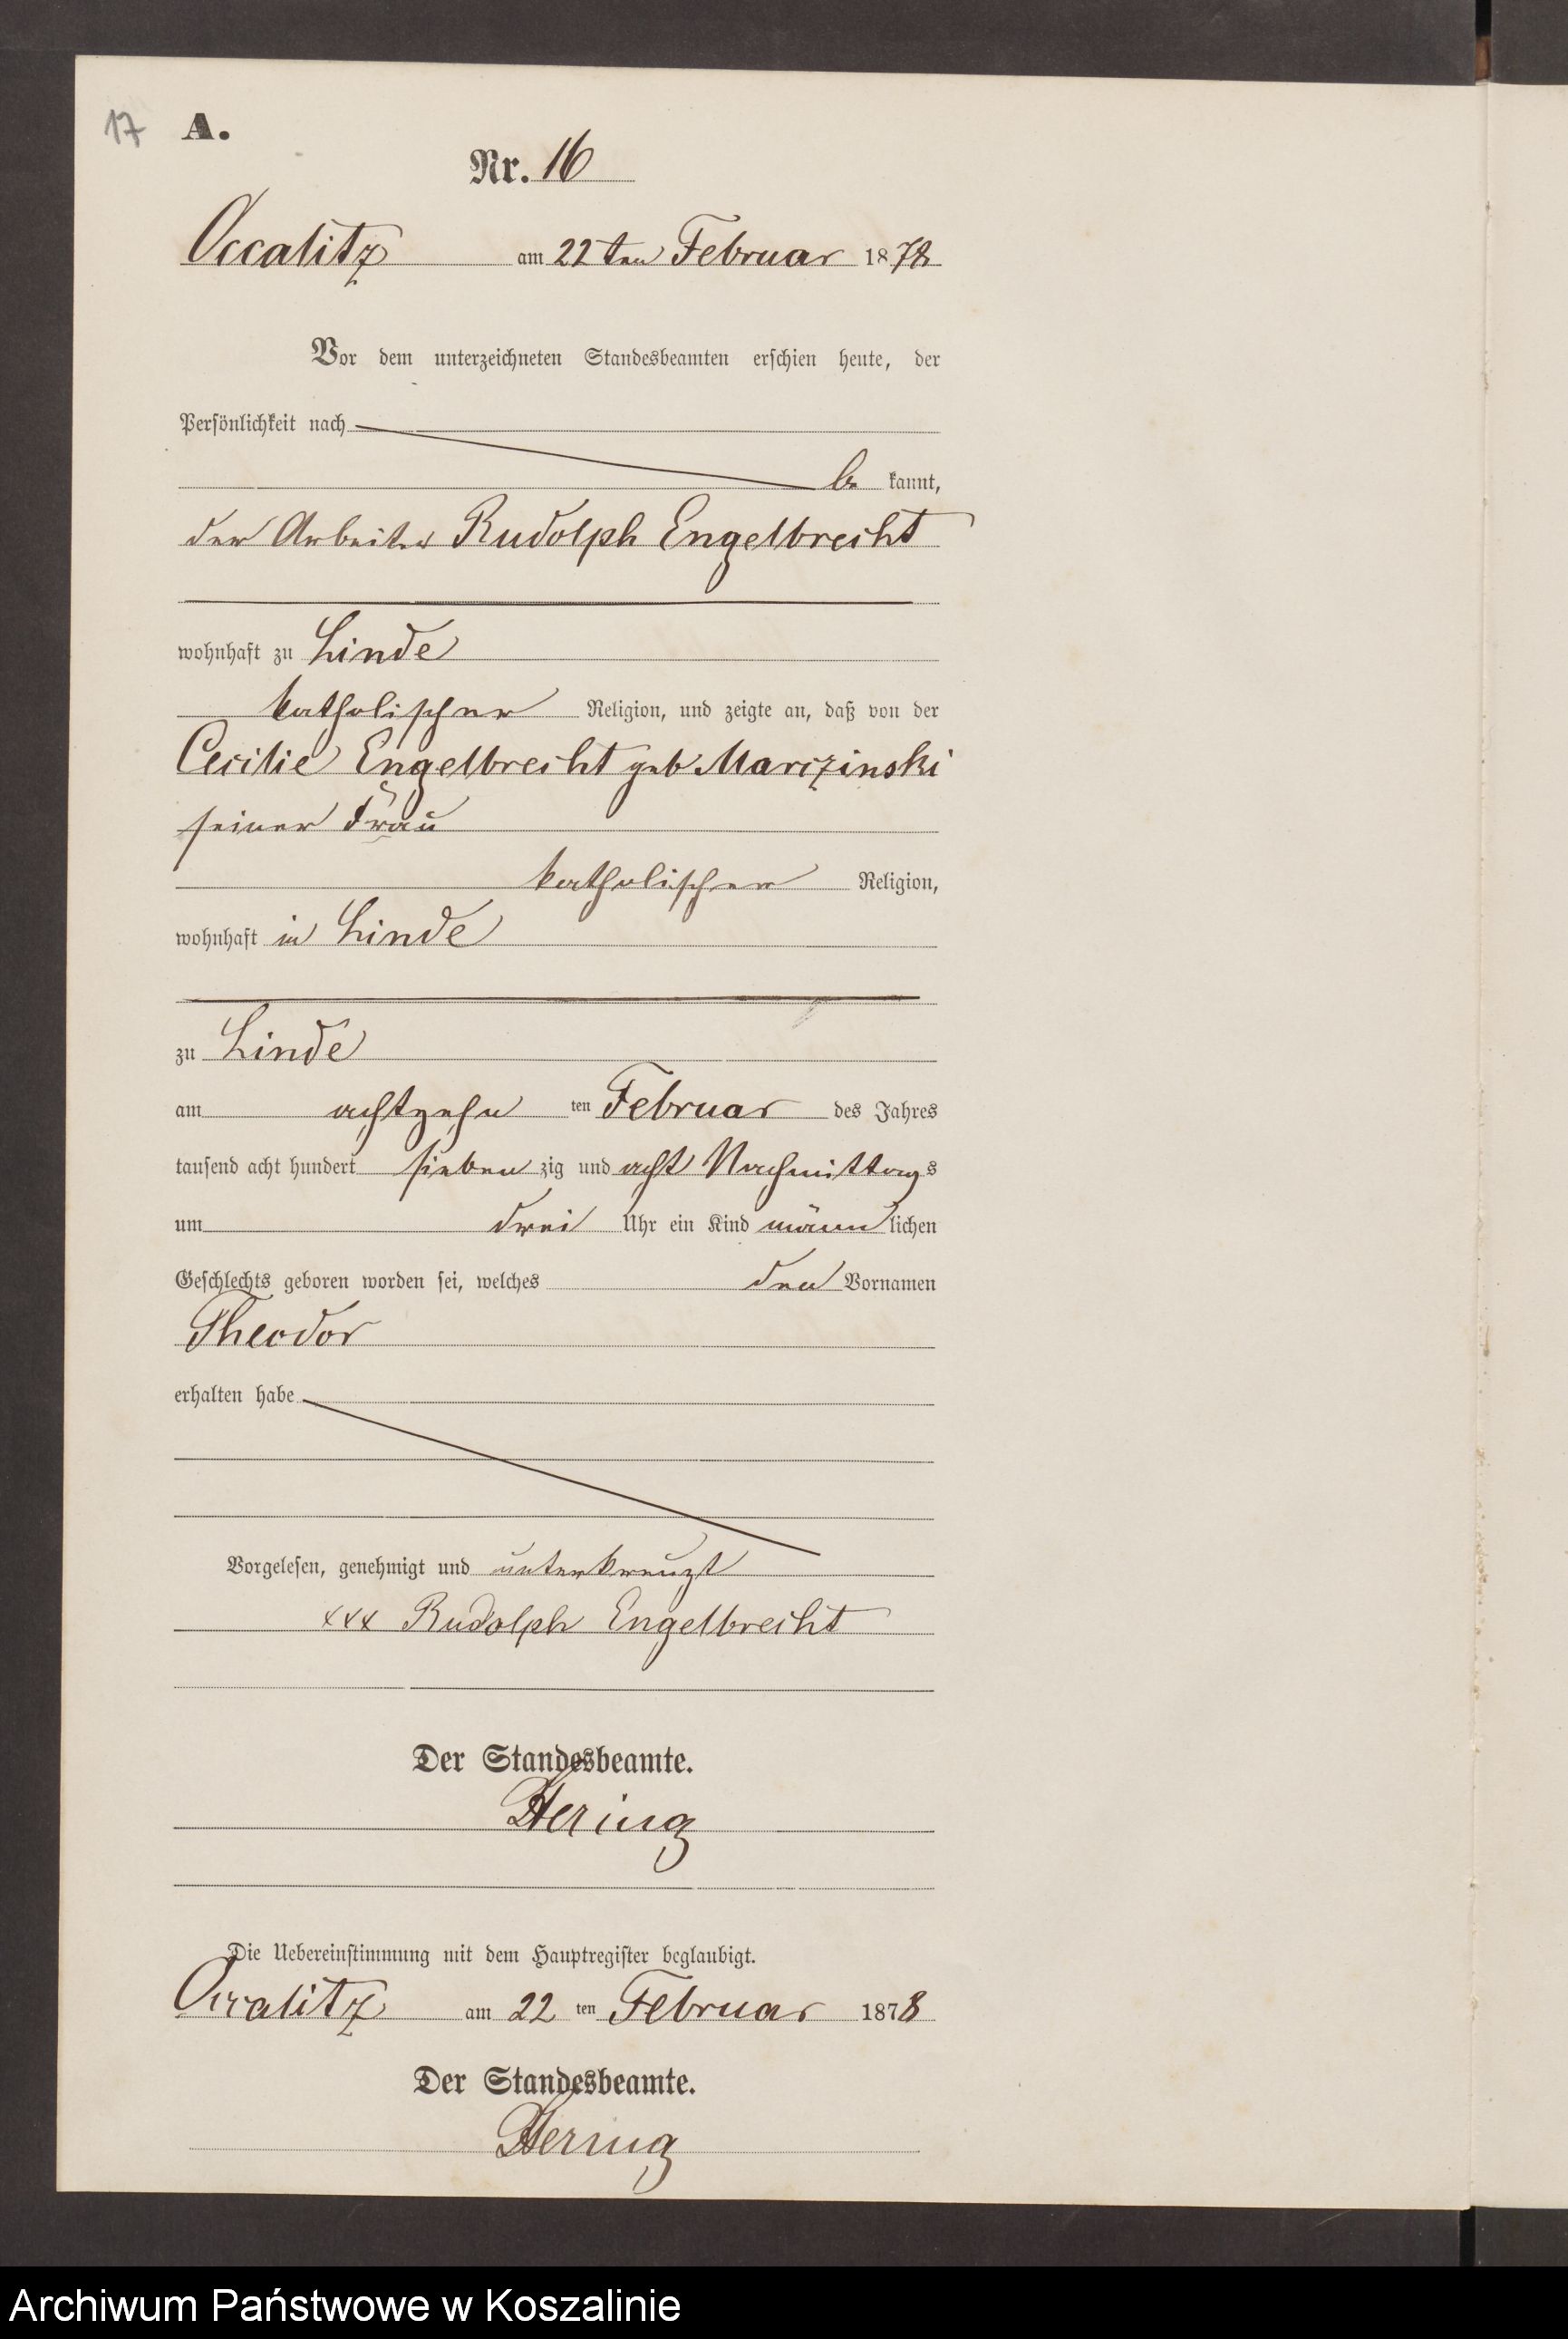 17 A.
Nr. 16
Occalitz am 22 ten Februar 1878
Vor dem unterzeichneten Standesbeamten erschien heute, der
Persönlichkeit nach
be kannt,
der Arbeiter Rudolph Engelbrecht
wohnhaft zu Linde
katholischer Religion, und zeigte an, daß von der
Cecilie Engelbrecht geb. Marczinski
seiner Frau
katholischer Religion,
wohnhaft in Linde
zu Linde
am achtzehn ten Februar des Jahres
tausend acht hundert sieben zig und acht Nachmittags
um drei Uhr ein Kind männlichen
Geschlechts geboren worden sei, welches den Vornamen
Theodor
erhalten habe
Vorgelesen, genehmigt und unterkreuzt
xxx Rudolph Engelbrecht
Der Standesbeamte.
Hering
Die Uebereinstimmung mit dem Hauptregister beglaubigt.
Occalitz am 22 ten Februar 1878
Der Standesbeamte.
Hering
Archiwum Państwowe w Koszalinie